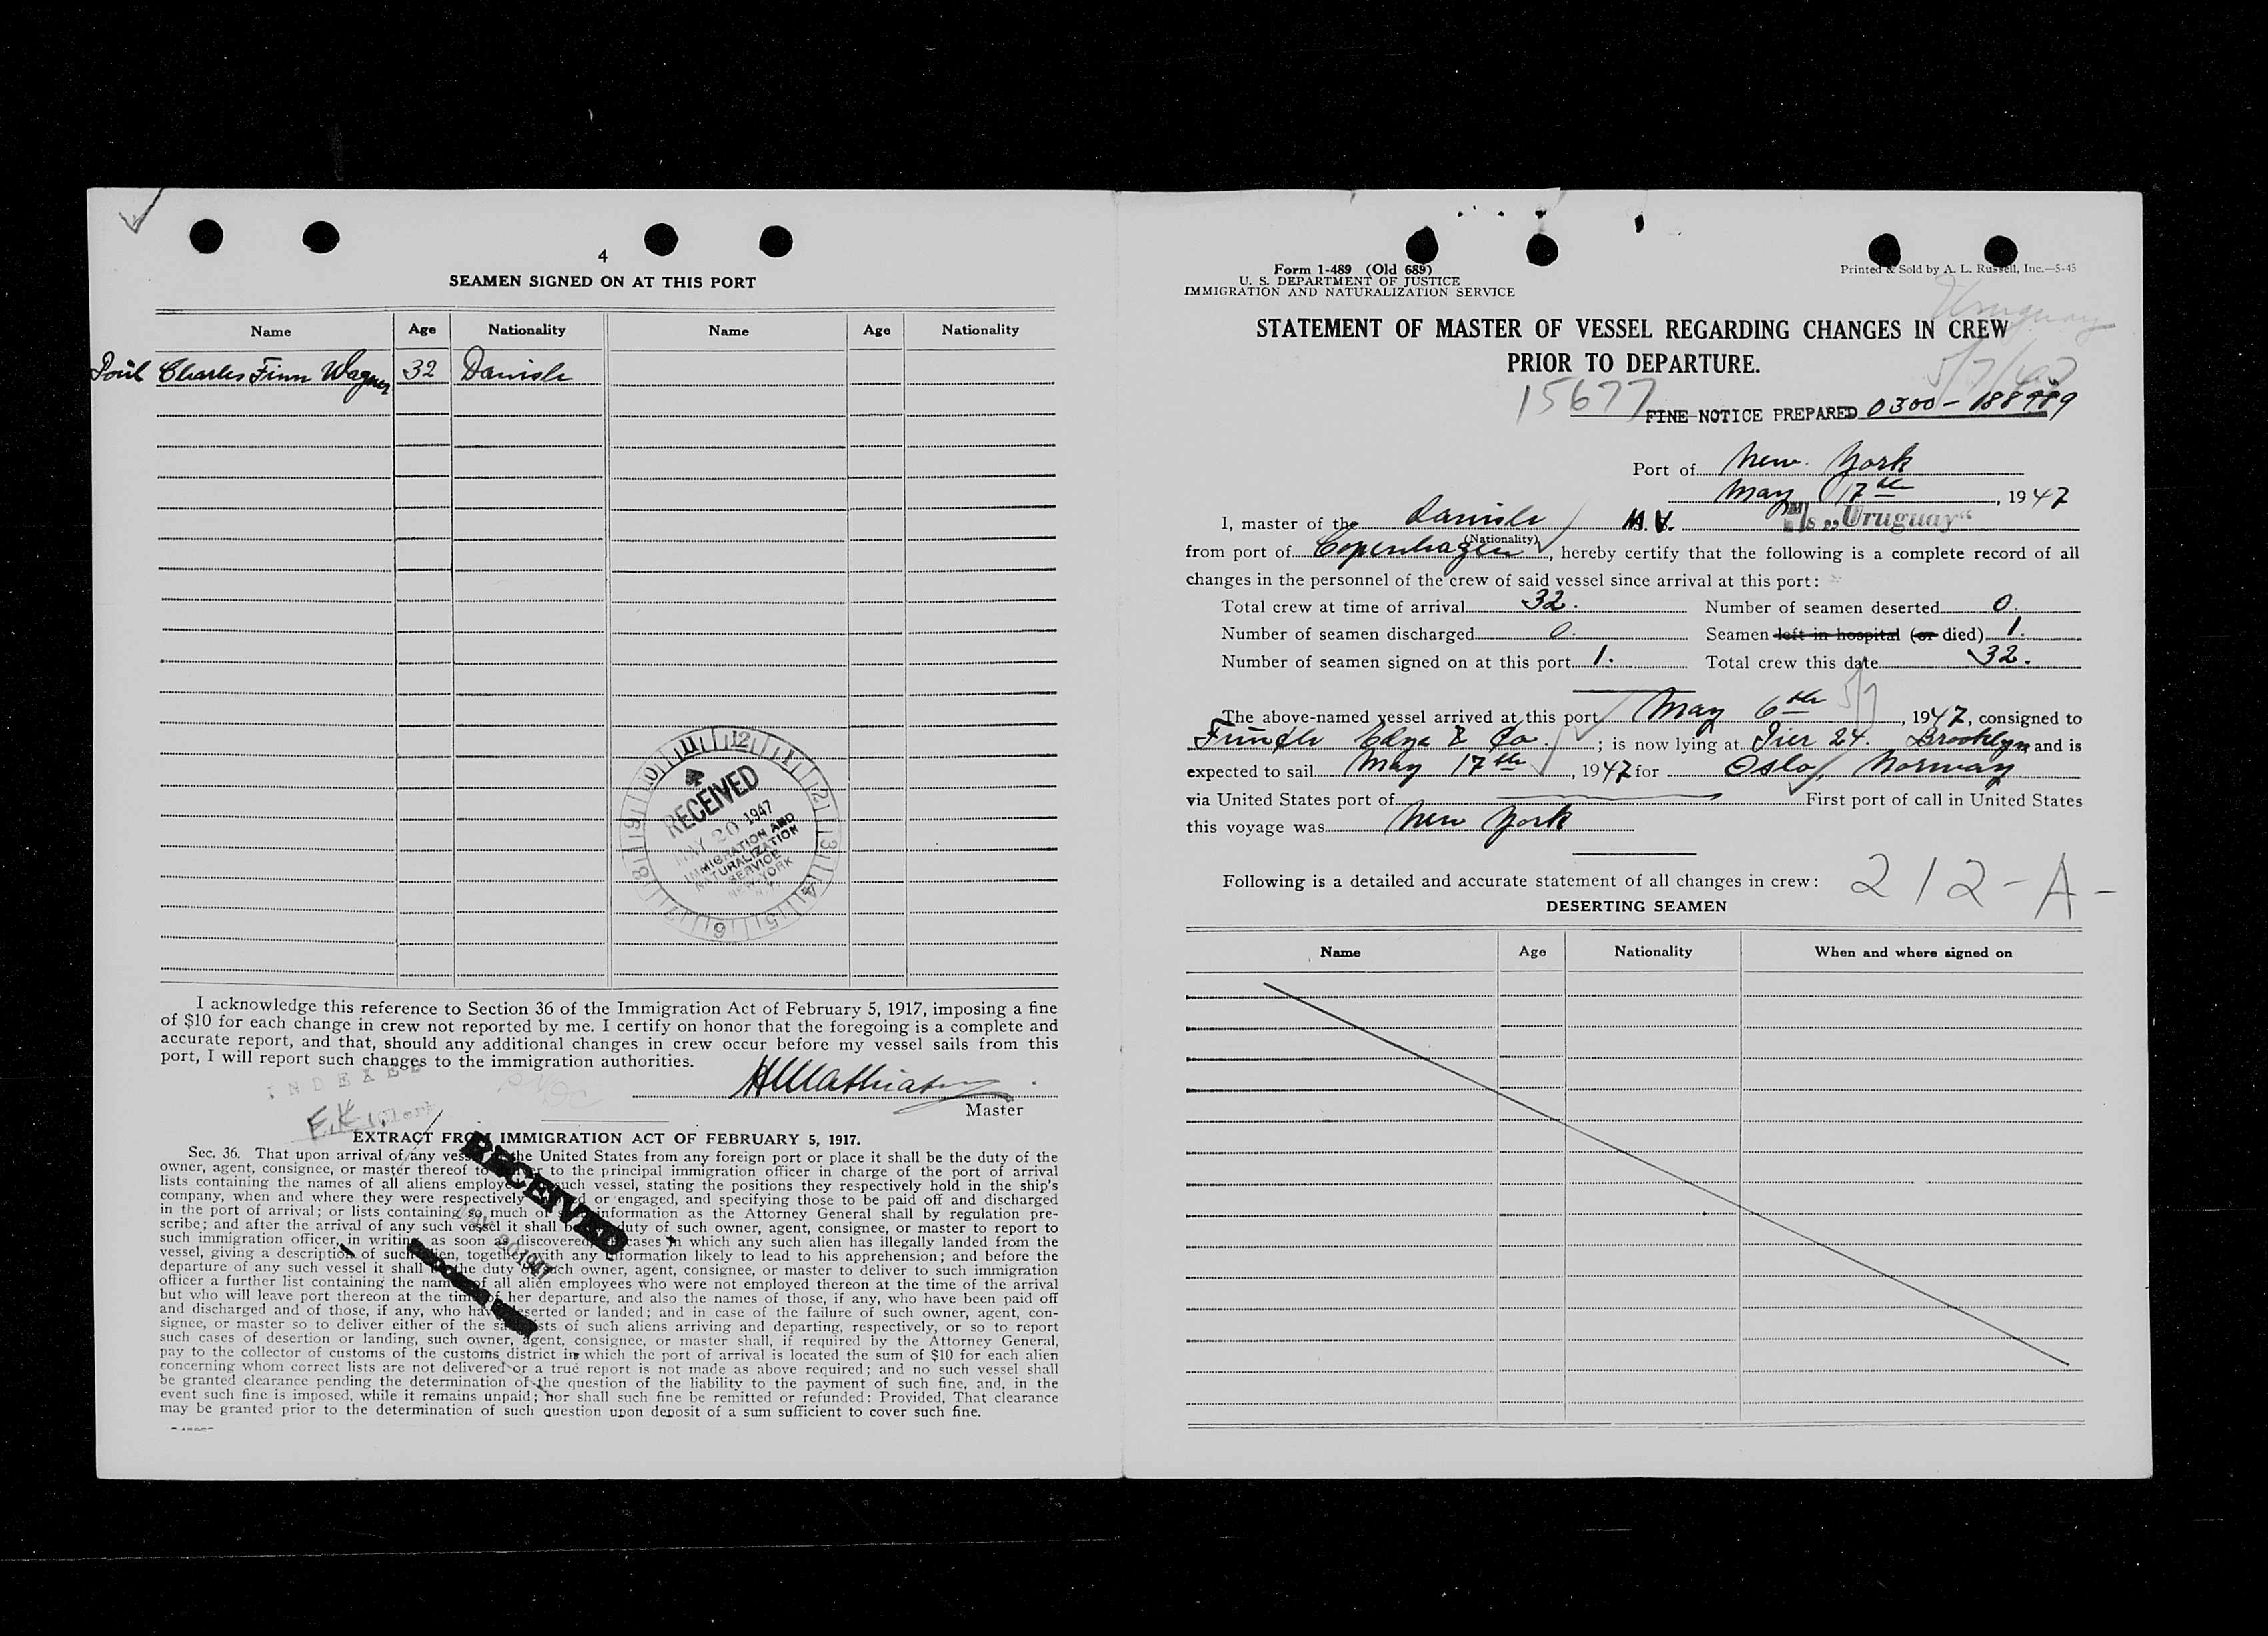 4
SEAMEN SIGNED ON AT THIS PORT
Name Age Nationality Name Age Nationality
Poul Charles Finn Wagner 32 Danish
11 12 1 2 3 4 5 6 7 8 9 10
RECEIVED
MAY 20 1947
IMMIGRATION AND
NATURALIZATION
SERVICE
NEW YORK
N.Y.
I acknowledge this reference to Section 36 of the Immigration Act of February 5, 1917, imposing a fine
of $10 for each change in crew not reported by me. I certify on honor that the foregoing is a complete and
accurate report, and that, should any additional changes in crew occur before my vessel sails from this
port, I will report such changes to the immigration authorities.
INDEXED
E.K. Clerk
Master
EXTRACT FROM IMMIGRATION ACT OF FEBRUARY 5, 1917.
RECEIVED
20 1947
Sec. 36. That upon arrival of any vessel in the United States from any foreign port or place it shall be the duty of the
owner, agent, consignee, or master thereof to deliver to the principal immigration officer in charge of the port of arrival
lists containing the names of all aliens employed on such vessel, stating the positions they respectively hold in the ship's
company, when and where they were respectively shipped or engaged, and specifying those to be paid off and discharged
in the port of arrival; or lists containing so much of such information as the Attorney General shall by regulation pre-
scribe; and after the arrival of any such vessel it shall be the duty of such owner, agent, consignee, or master to report to
such immigration officer, in writing, as soon as discovered, all cases in which any such alien has illegally landed from the
vessel, giving a description of such alien, together with any information likely to lead to his apprehension; and before the
departure of any such vessel it shall be the duty of such owner, agent, consignee, or master to deliver to such immigration
officer a further list containing the names of all alien employees who were not employed thereon at the time of the arrival
but who will leave port thereon at the time of her departure, and also the names of those, if any, who have been paid off
and discharged and of those, if any, who have deserted or landed; and in case of the failure of such owner, agent, con-
signee, or master so to deliver either of the said lists of such aliens arriving and departing, respectively, or so to report
such cases of desertion or landing, such owner, agent, consignee, or master shall, if required by the Attorney General,
pay to the collector of customs of the customs district in which the port of arrival is located the sum of $10 for each alien
concerning whom correct lists are not delivered or a true report is not made as above required; and no such vessel shall
be granted clearance pending the determination of the question of the liability to the payment of such fine, and, in the
event such fine is imposed, while it remains unpaid; nor shall such fine be remitted or refunded: Provided, That clearance
may be granted prior to the determination of such question upon deposit of a sum sufficient to cover such fine.
Form 1-489 (Old 689)
U. S. DEPARTMENT OF JUSTICE
IMMIGRATION AND NATURALIZATION SERVICE
Printed & Sold by A. L. Russell, Inc.—5-45
Uruguay
STATEMENT OF MASTER OF VESSEL REGARDING CHANGES IN CREW
PRIOR TO DEPARTURE.
5/7/47
15677 FINE NOTICE PREPARED 0300-188989
Port of New York
May 17th, 1947
I, master of the Danish M.V. M/s „Uruguay"
(Nationality)
from port of Copenhagen, hereby certify that the following is a complete record of all
changes in the personnel of the crew of said vessel since arrival at this port:
Total crew at time of arrival 32. Number of seamen deserted 0.
Number of seamen discharged 0. Seamen left in hospital (or died) 1.
Number of seamen signed on at this port 1. Total crew this date 32.
The above-named vessel arrived at this port May 6th 5/7, 1947, consigned to
Funch Edye & Co.; is now lying at Pier 24. Brooklyn and is
expected to sail May 17th, 1947 for Oslo, Norway
via United States port of First port of call in United States
this voyage was New York
Following is a detailed and accurate statement of all changes in crew: 212-A-
DESERTING SEAMEN
Name Age Nationality When and where signed on